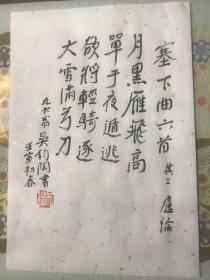 塞下曲六首 其二 盧綸
月黑雁飛高
單于夜遁逃
欲將輕騎逐
大雪滿弓刀
九六翁 吳鈞陶書
壬寅初春